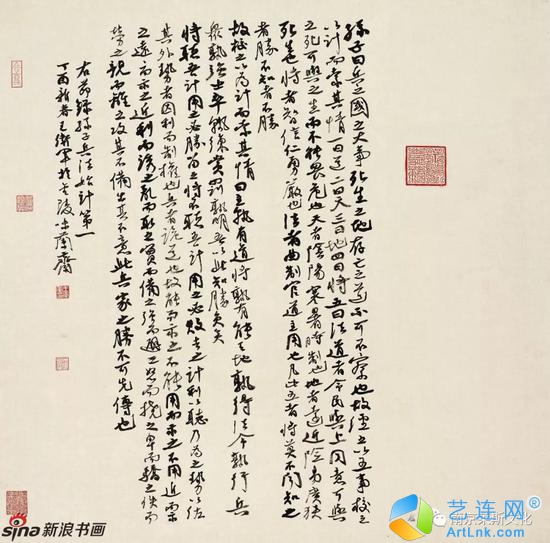 孫子曰兵者國之大事死生之地存亡之道不可不察也故經之以五事校之
以計而索其情一曰道二曰天三曰地四曰將五曰法道者令民與上同意可與
之死可與之生而不畏危也天者陰陽寒暑時制也地者遠近險易廣狹
死生也將者智信仁勇嚴也法者曲制官道主用也凡此五者將莫不聞知之
者勝不知者不勝
故校之以為計而索其情曰主孰有道將孰有能天地孰得法令孰行兵
眾孰強士卒孰練賞罰孰明吾以此知勝負矣
將聽吾計用之必勝留之將不聽吾計用之必敗去之計利以聽乃為之勢以佐
其外勢者因利而制權也兵者詭道也故能而示之不能用而示之不用近而示
之遠遠而示之近利而誘之亂而取之實而備之強而避之怒而撓之卑而驕之佚而
勞之親而離之攻其不備出其不意此兵家之勝不可先傳也
右節錄孫子兵法始計第一
丁酉新春王衛軍於金陵味蘭齋
sina新浪书画
艺连网
ylw.net